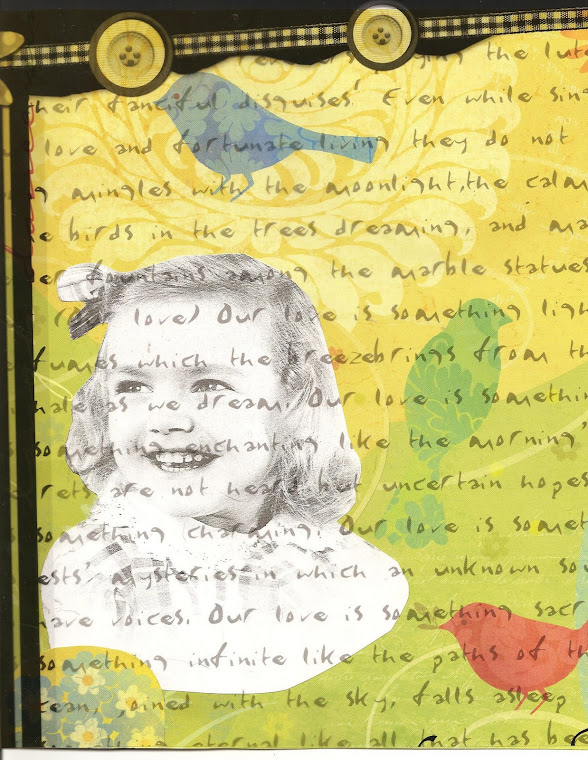 playing the lute
their fanciful disguises! Even while sin
love and fortunate living they do not
mingles with the moonlight, the calm
e birds in the trees dreaming, and ma
er fountains among the marble statues
(Our love) Our love is something ligh
fumes which the breezebrings from th
hale as we dream. Our love is someth
something enchanting like the morning'
rets are not heard but uncertain hopes
something charming. Our love is somet
ests' mysteries in which an unknown so
have voices. Our love is something sacr
something infinite like the paths of th
cean, joined with the sky, falls asleep
eternal like all that has bee